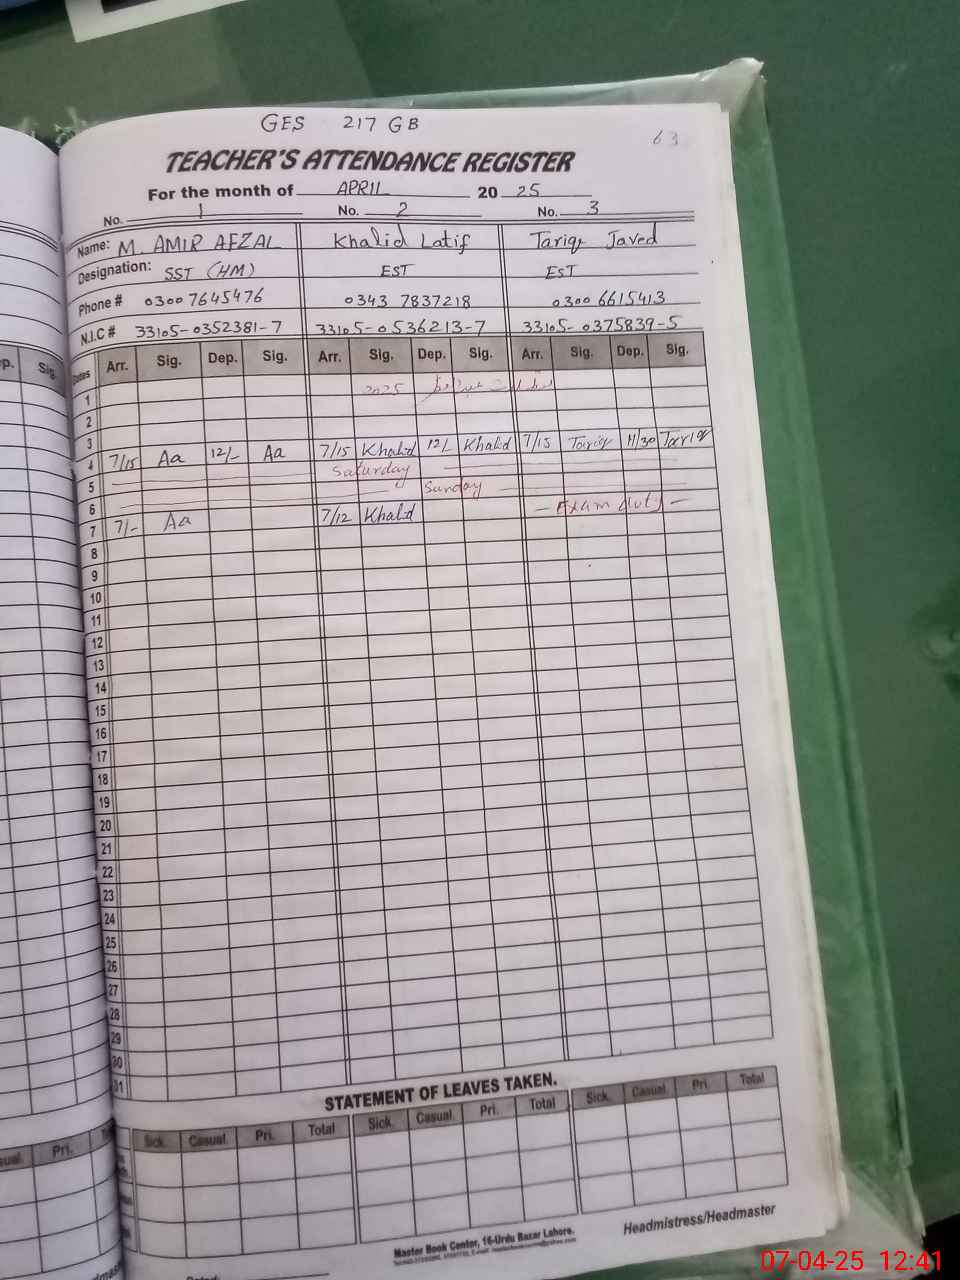 GES 217 GB
63
TEACHER'S ATTENDANCE REGISTER
For the month of APRIL 20 25
No. 1 No. 2 No. 3
Name: M. AMIR AFZAL Khalid Latif Tariq Javed
Designation: SST (HM) EST EST
Phone # 0300 7645476 0343 7837218 0300 6615413
N.I.C # 33105-0352381-7 33105-0536213-7 33105-0375839-5
Dates Arr. Sig. Dep. Sig. Arr. Sig. Dep. Sig. Arr. Sig. Dep. Sig.
1 2025
2
3
4 7/15 Aa 12/- Aa 7/15 Khalid 12/- Khalid 7/15 Tariq 11/30 Tariq
5 Saturday
6 Sunday
7 7/- Aa 7/12 Khalid - Exam duty -
8
9
10
11
12
13
14
15
16
17
18
19
20
21
22
23
24
25
26
27
28
29
30
31
STATEMENT OF LEAVES TAKEN.
Sick. Casual. Pri. Total Sick. Casual. Pri. Total Sick. Casual. Pri. Total
Headmistress/Headmaster
Master Book Center, 16-Urdu Bazar Lahore.
ep. Sig.
Pri.
07-04-25 12:41